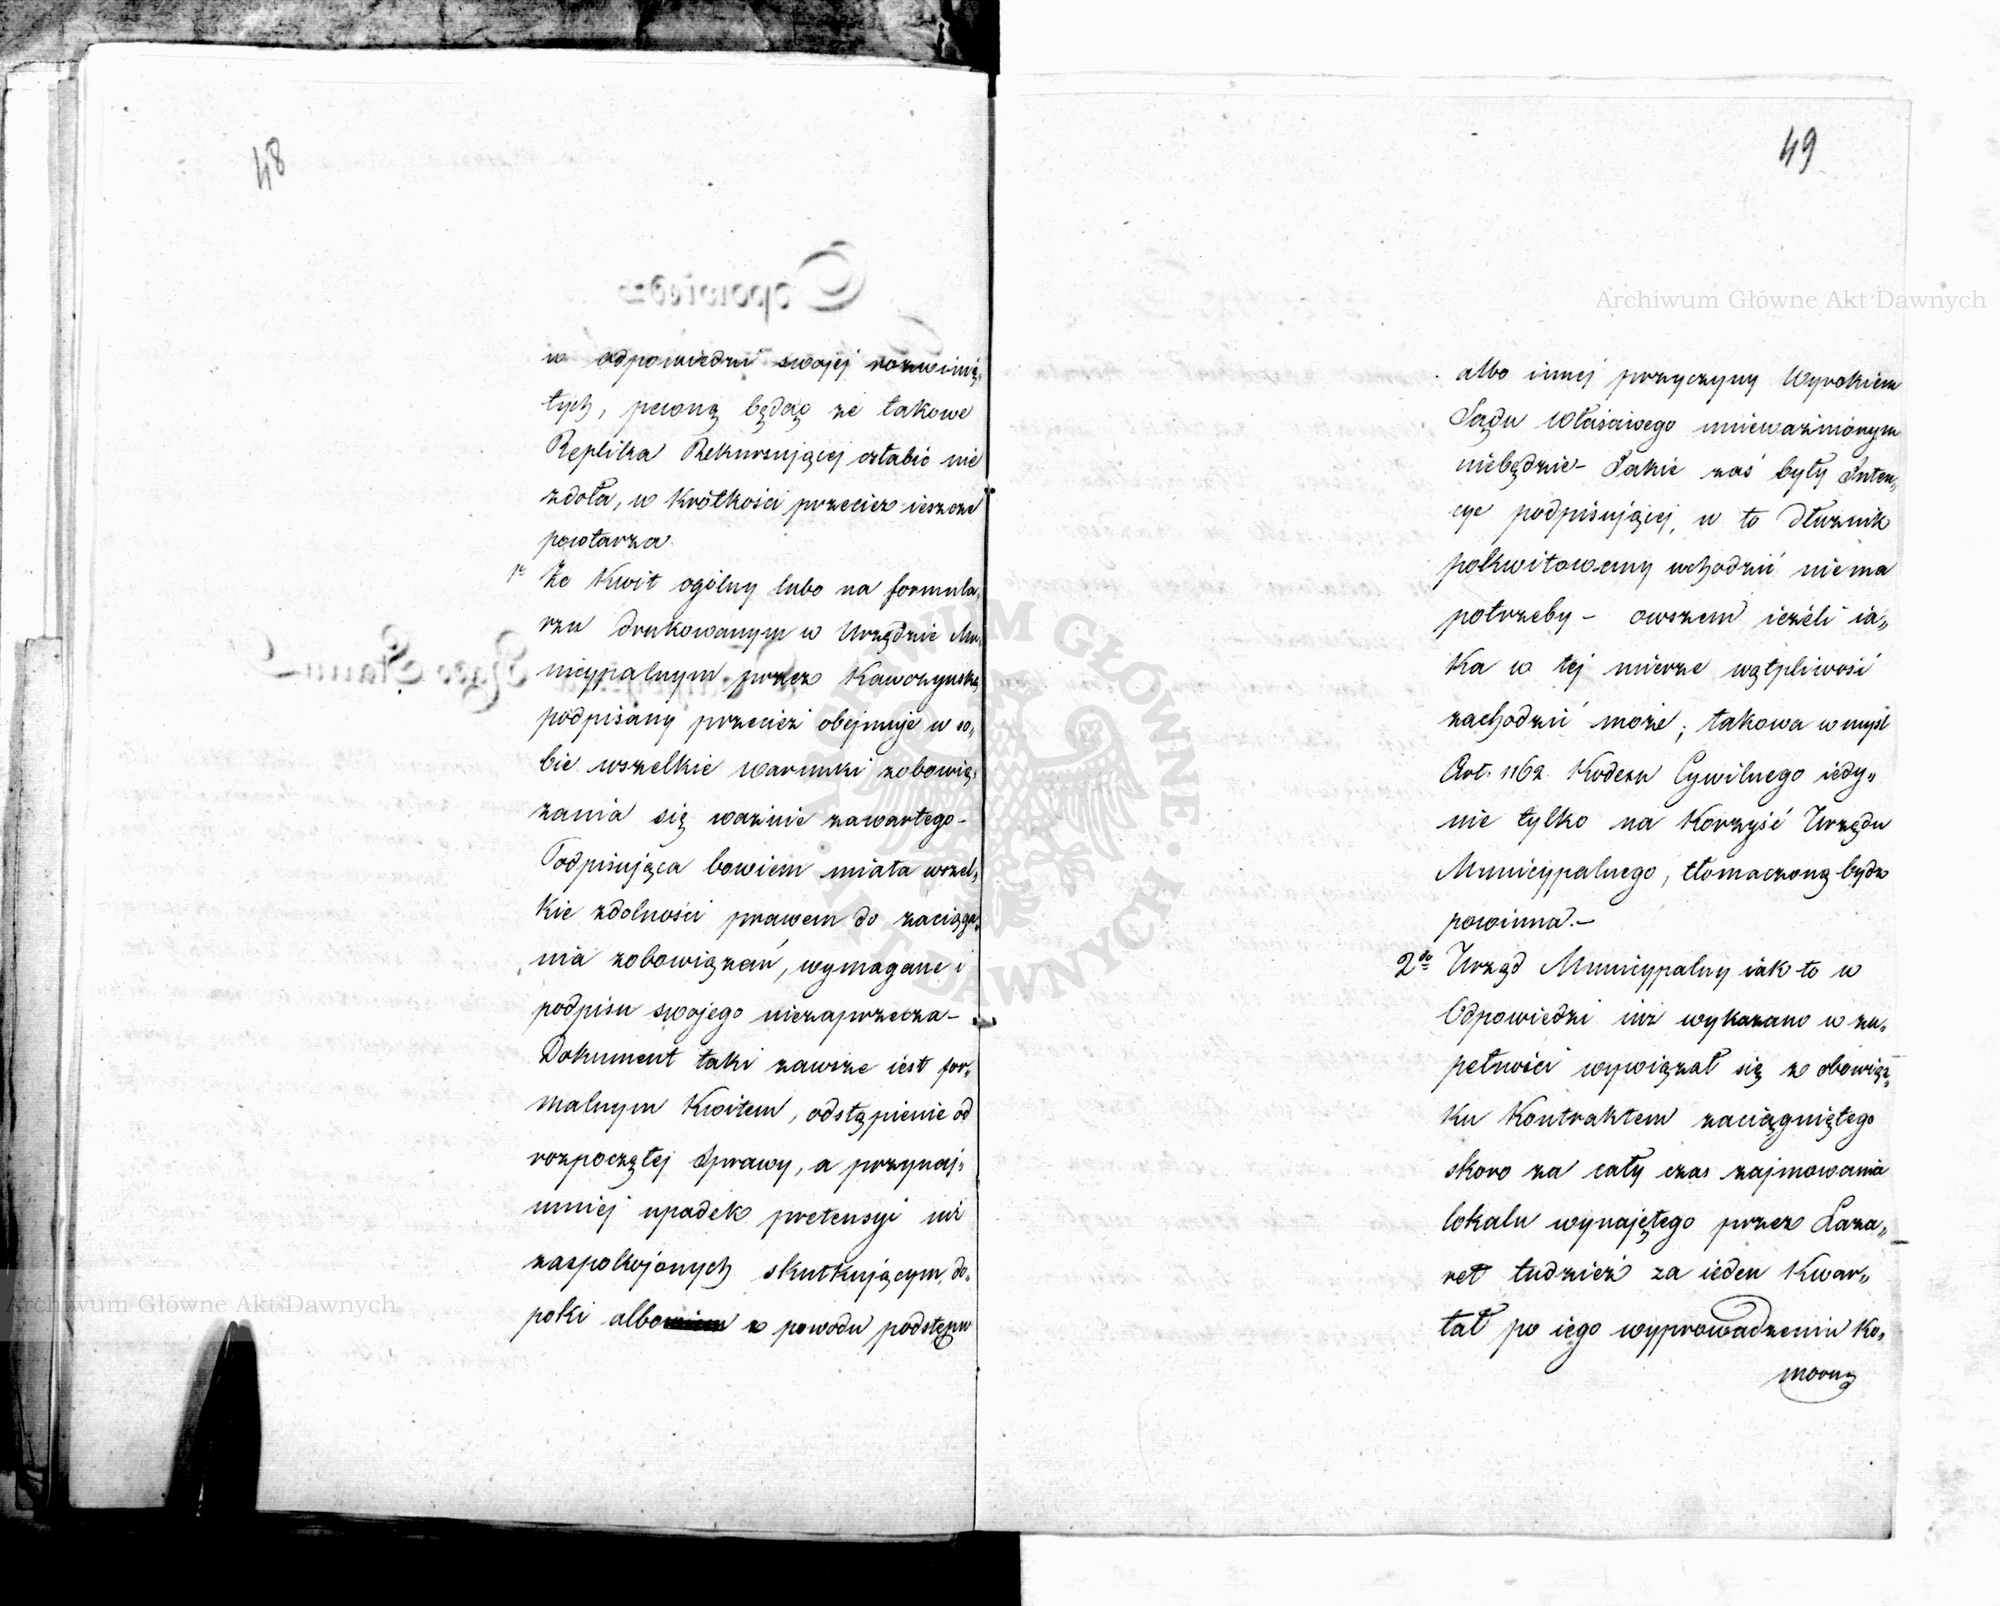 48
w odpowiedzi swojej rozwinię„
tych, pewną będąc że takowe
Replika Rekursującej osłabić nie
zdoła, w krótkości przecież ieszcze
powtarza
1o Że Kwit ogólny lubo na formula„
rzu drukowanym w Urzędzie Mu„
nicypalnym przez Kawczyńską
podpisany przecież obejmuje w so„
bie wszelkie warunki zobowią„
zania się ważnie zawartego –
Podpisująca bowiem miała wszel„
kie zdolności prawem do zaciąga„
nia zobowiązań, wymagane i
podpisu swojego niezaprzecza –
Dokument taki zawsze iest for„
malnym Kwitem, odstąpienie od
rozpoczętej Sprawy, a przynaj„
mniej upadek pretensyi iuż
zaspokojonych skutkującym, do„
poki albo z powodu podstępu
49
albo innej przyczyny Wyrokiem
Sądu Właściwego unieważnionym
niebędzie – Jakie zaś były Inten„
cye podpisującej, w to dłużnik
pokwitowany wchodzić niema
potrzeby – owszem ieżeli ia„
ka w tej mierze wątpliwość
zachodzić może; takowa w myśl
Art. 1162 Kodexu Cywilnego iedy„
nie tylko na korzyść Urzędu
Municypalnego, tłomaczoną bydź
powinna. –
2do Urząd Municypalny iak to w
Odpowiedzi iuż wykazano w zu„
pełności wywiązał się z obowiąz„
ku Kontraktem zaciągniętego
skoro za cały czas zajmowania
lokalu wynajętego przez Laza„
ret tudzież za ieden Kwar„
tał po iego wyprowadzeniu Ko„
morną
Archiwum Główne Akt Dawnych
Archiwum Główne Akt Dawnych